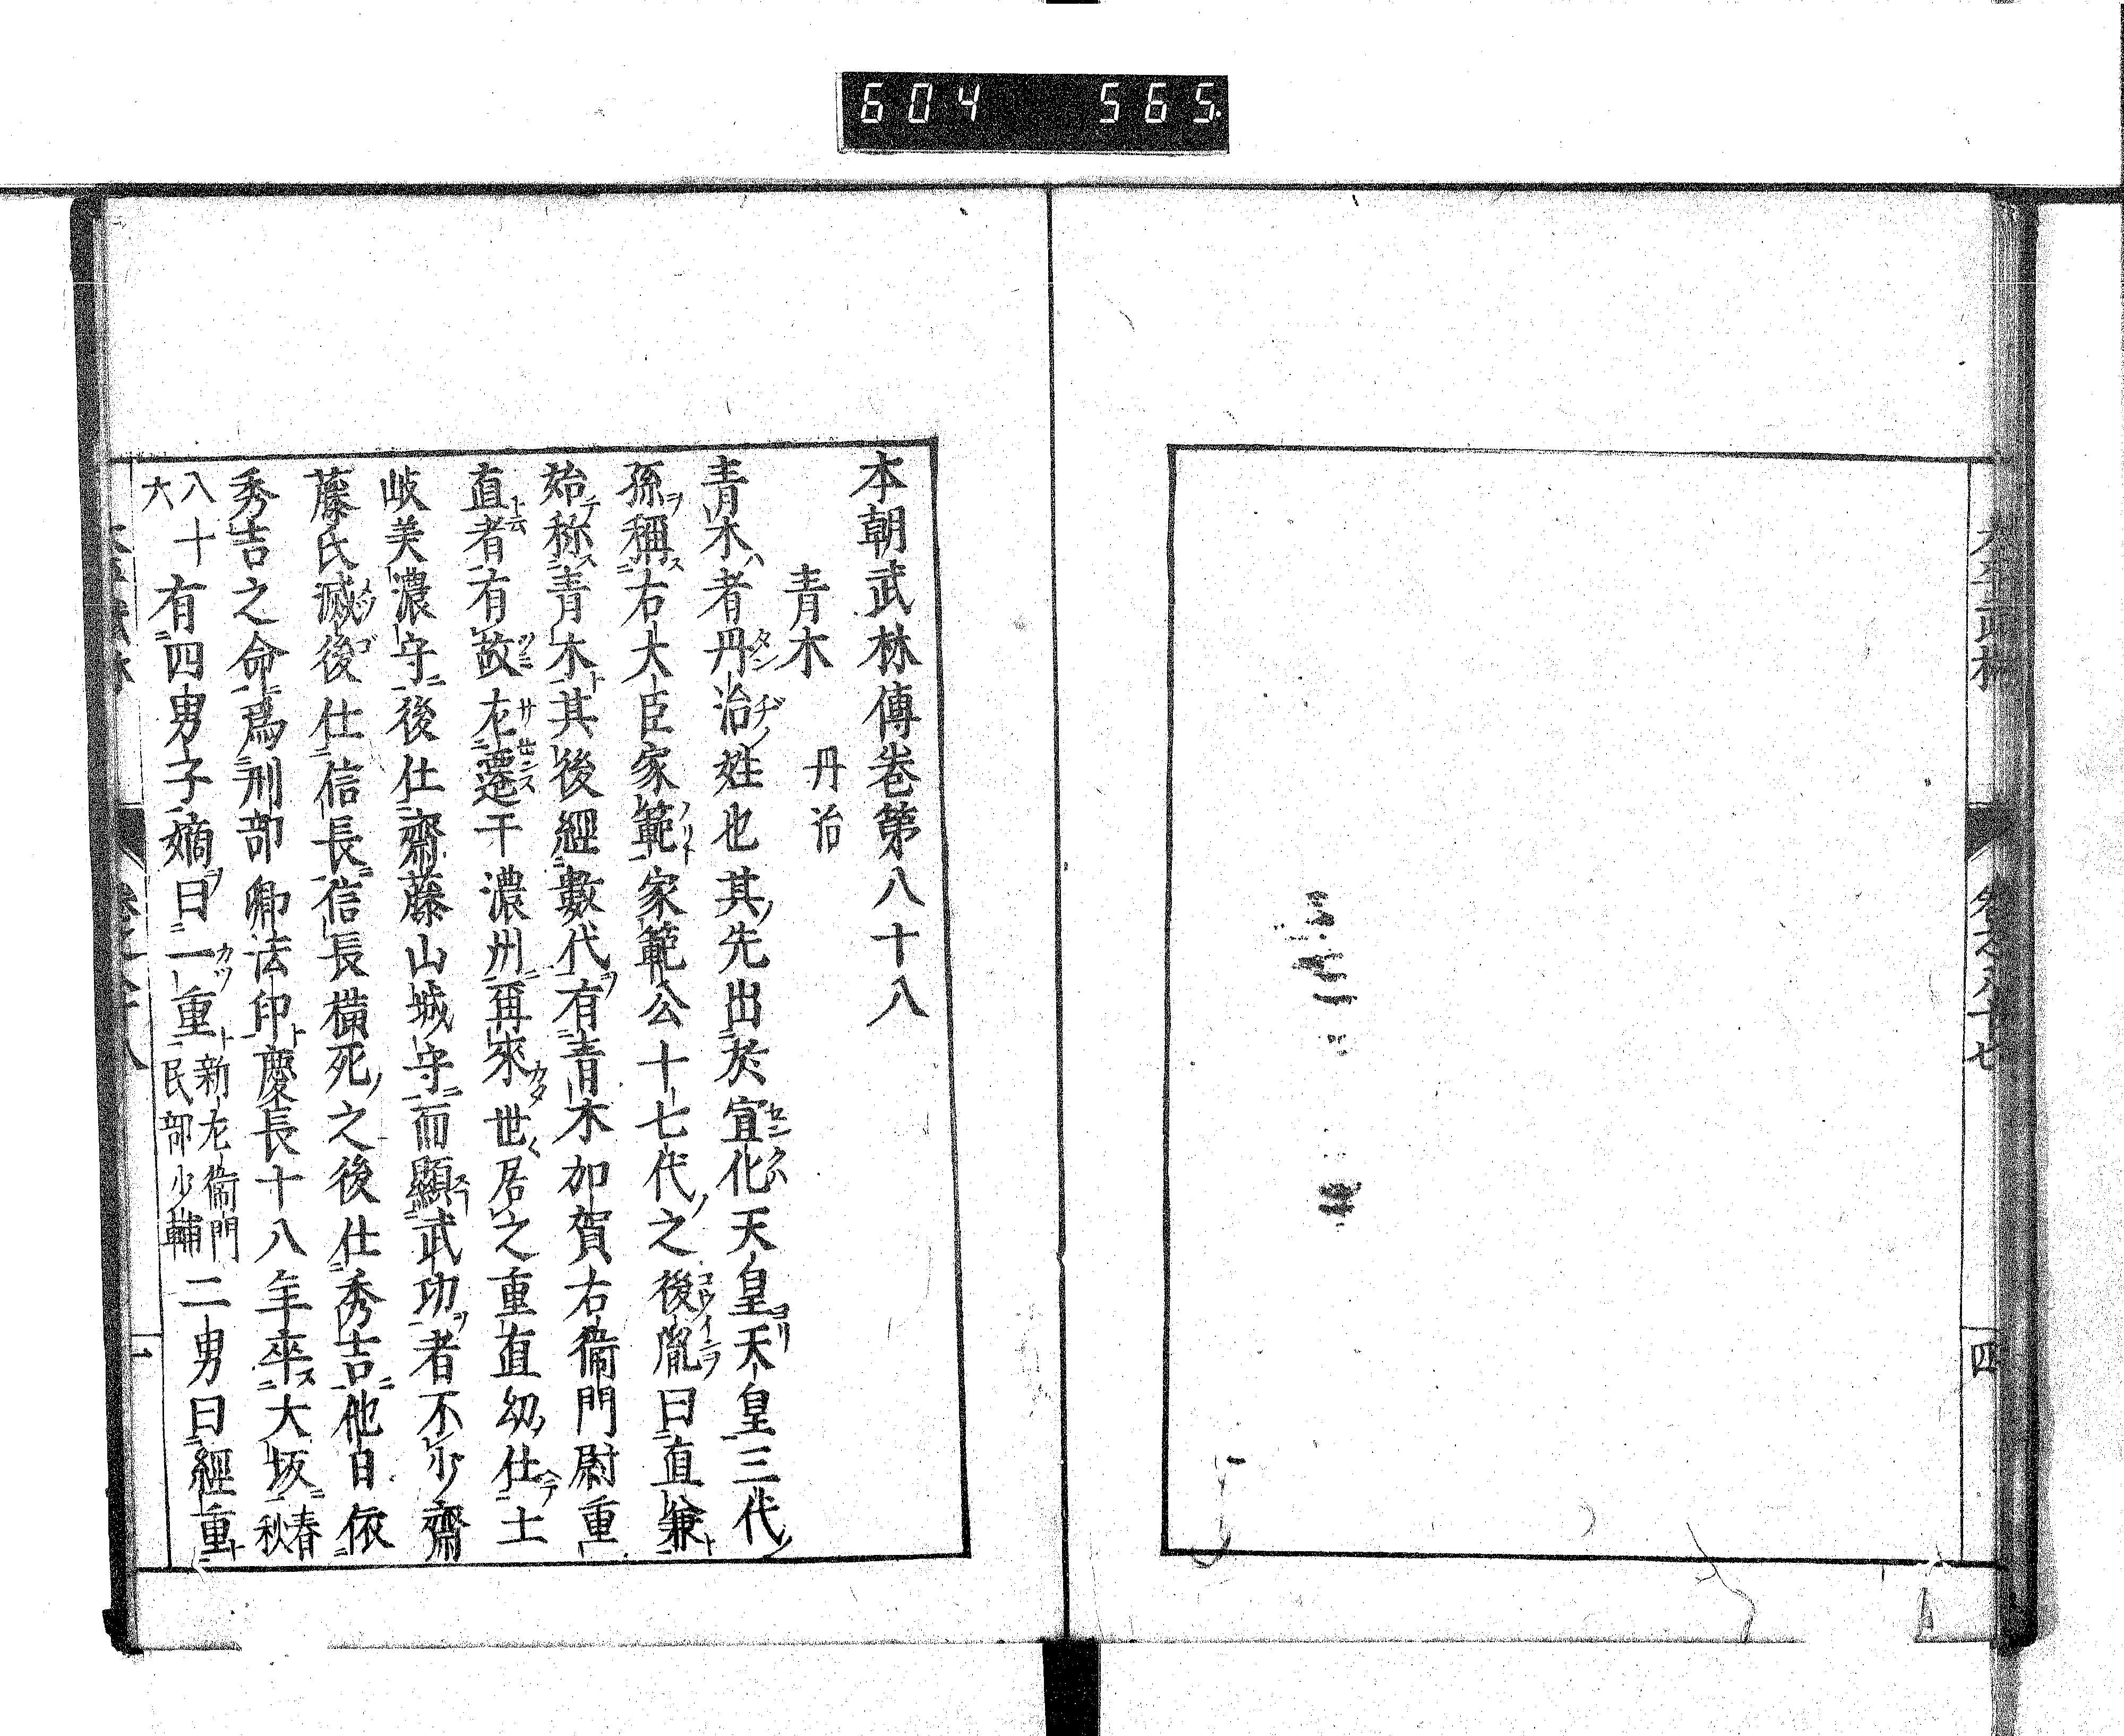 604 565
四
本朝武林傳卷第八十八
青木 丹治
青木者丹治姓也其先出於宣化天皇天皇三代
孫稱右大臣家範家範公十七代之後胤曰直兼
始称青木其後經數代有青木加賀右衞門尉重
直者有故左遷于濃州再來世居之重直幼仕土
岐美濃守後仕齋藤山城守而顯武功者不少齋
藤氏滅後仕信長信長横死之後仕秀吉他日依
秀吉之命爲刑部卿法印慶長十八年卒大坂春秋
八十六有四男子嫡曰一重新左衞門民部少輔二男曰經重
一